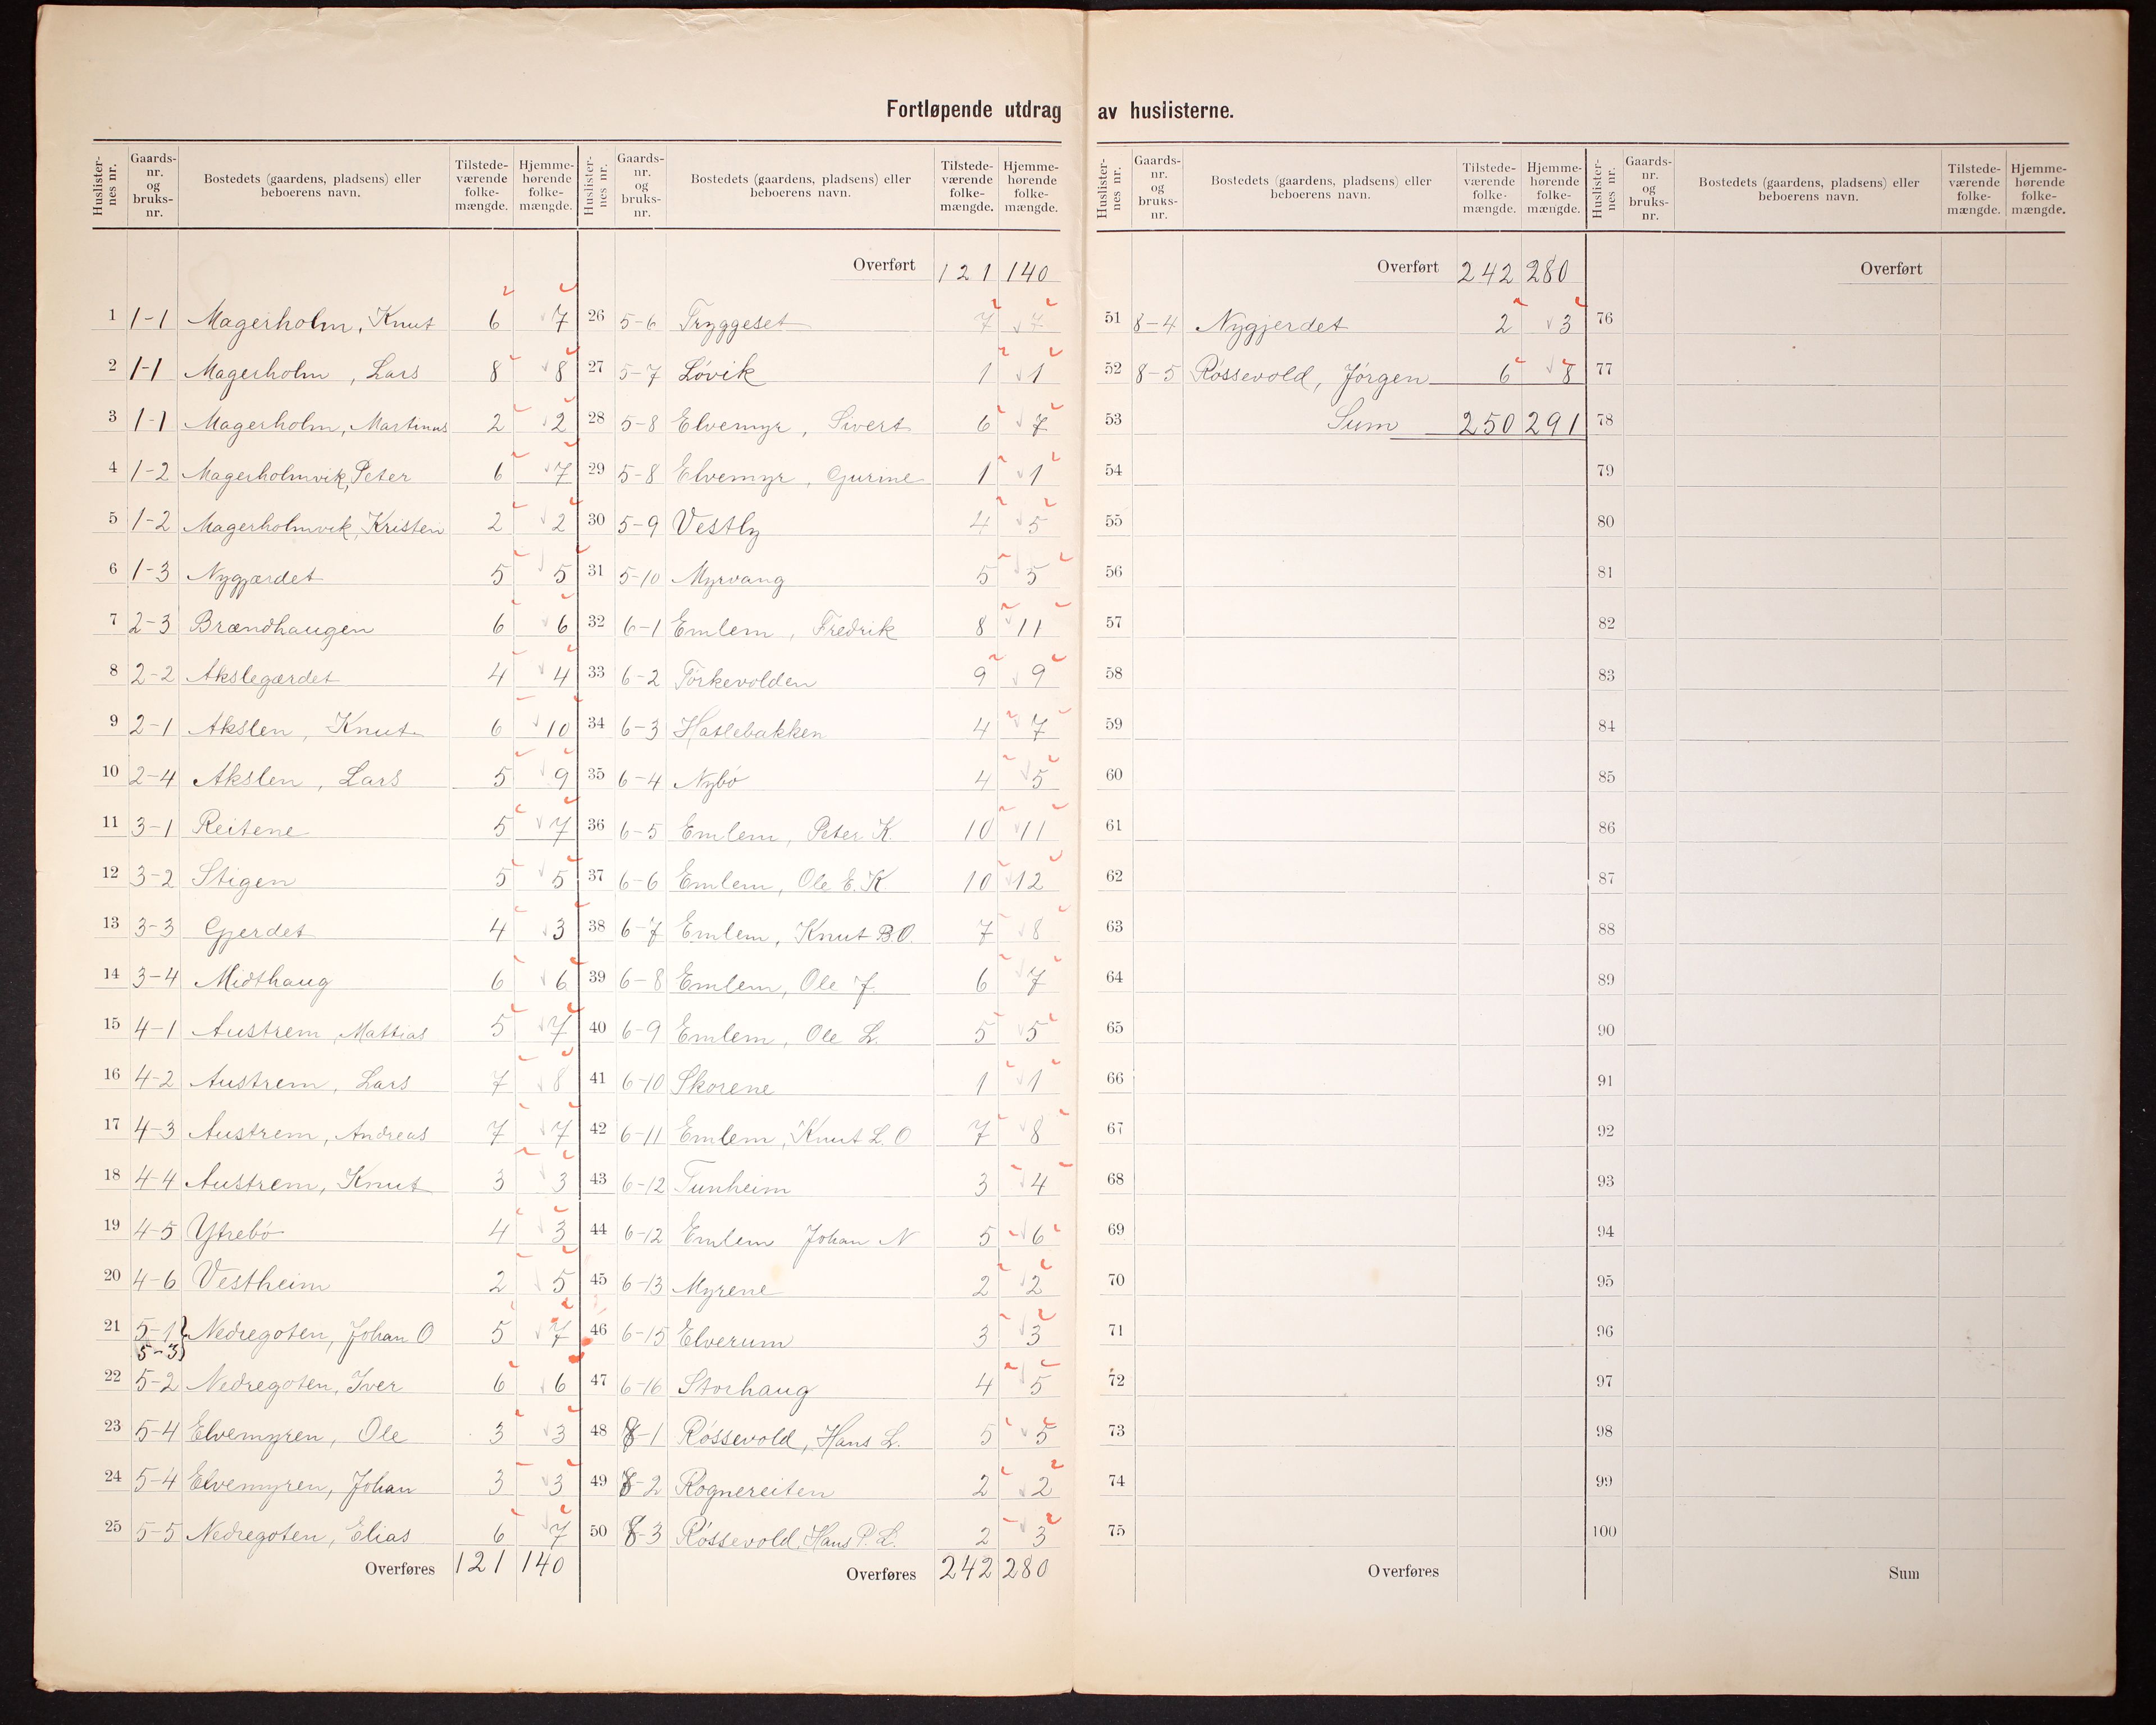 Fortløpende utdrag av huslisterne.
Huslisternes nr. | Gaards-nr. og bruks-nr. | Bostedets (gaardens, pladsens) eller beboerens navn. | Tilstede-værende folke-mængde. | Hjemme-hørende folke-mængde.
1 1-1 Magerholm, Knut 6 7
2 1-1 Magerholm, Lars 8 8
3 1-1 Magerholm, Martinus 2 2
4 1-2 Magerholmvik, Peter 6 7
5 1-2 Magerholmvik, Kristen 2 2
6 1-3 Nygjærdet 5 5
7 2-3 Brændhaugen 6 6
8 2-2 Akslegærdet 4 4
9 2-1 Akslen, Knut 6 10
10 2-4 Akslen, Lars 5 9
11 3-1 Reitene 5 7
12 3-2 Stigen 5 5
13 3-3 Gjerdet 4 3
14 3-4 Midthaug 6 6
15 4-1 Austrem, Mattias 5 7
16 4-2 Austrem, Lars 7 8
17 4-3 Austrem, Andreas 7 7
18 4-4 Austrem, Knut 3 3
19 4-5 Ytrebö 4 3
20 4-6 Vestheim 2 5
21 5-1 } Nedregoten, Johan O 5 7
5-3
22 5-2 Nedregoten, Iver 6 6
23 5-4 Elvemyren, Ole 3 3
24 5-4 Elvemyren, Johan 3 3
25 5-5 Nedregoten, Elias 6 7
Overføres 121 140
Huslisternes nr. | Gaards-nr. og bruks-nr. | Bostedets (gaardens, pladsens) eller beboerens navn. | Tilstede-værende folke-mængde. | Hjemme-hørende folke-mængde.
Overført 121 140
26 5-6 Tryggeset 7 7
27 5-7 Lövik 1 1
28 5-8 Elvemyr, Sivert 6 7
29 5-8 Elvemyr, Gurine 1 1
30 5-9 Vestly 4 5
31 5-10 Myrvang 5 5
32 6-1 Emlem, Fredrik 8 11
33 6-2 Törkevolden 9 9
34 6-3 Haslebakken 4 7
35 6-4 Nybö 4 5
36 6-5 Emlem, Peter K 10 11
37 6-6 Emlem, Ole E. K. 10 12
38 6-7 Emlem, Knut B.O. 7 8
39 6-8 Emlem, Ole J. 6 7
40 6-9 Emlem, Ole L. 5 5
41 6-10 Skorene 1 1
42 6-11 Emlem, Knut L. O 7 8
43 6-12 Tunheim 3 4
44 6-12 Emlem Johan N 5 6
45 6-13 Myrene 2 2
46 6-15 Elverum 3 3
47 6-16 Storhaug 4 5
48 8-1 Rössevold, Hans L. 5 5
49 8-2 Rognereiten 2 2
50 8-3 Rössevold, Hans P. L. 2 3
Overføres 242 280
Huslisternes nr. | Gaards-nr. og bruks-nr. | Bostedets (gaardens, pladsens) eller beboerens navn. | Tilstede-værende folke-mængde. | Hjemme-hørende folke-mængde.
Overført 242 280
51 8-4 Nygjerdet 2 3
52 8-5 Rössevold, Jörgen 6 8
53 Sum 250 291
54
55
56
57
58
59
60
61
62
63
64
65
66
67
68
69
70
71
72
73
74
75
Overføres
Huslisternes nr. | Gaards-nr. og bruks-nr. | Bostedets (gaardens, pladsens) eller beboerens navn. | Tilstede-værende folke-mængde. | Hjemme-hørende folke-mængde.
Overført
76
77
78
79
80
81
82
83
84
85
86
87
88
89
90
91
92
93
94
95
96
97
98
99
100
Sum